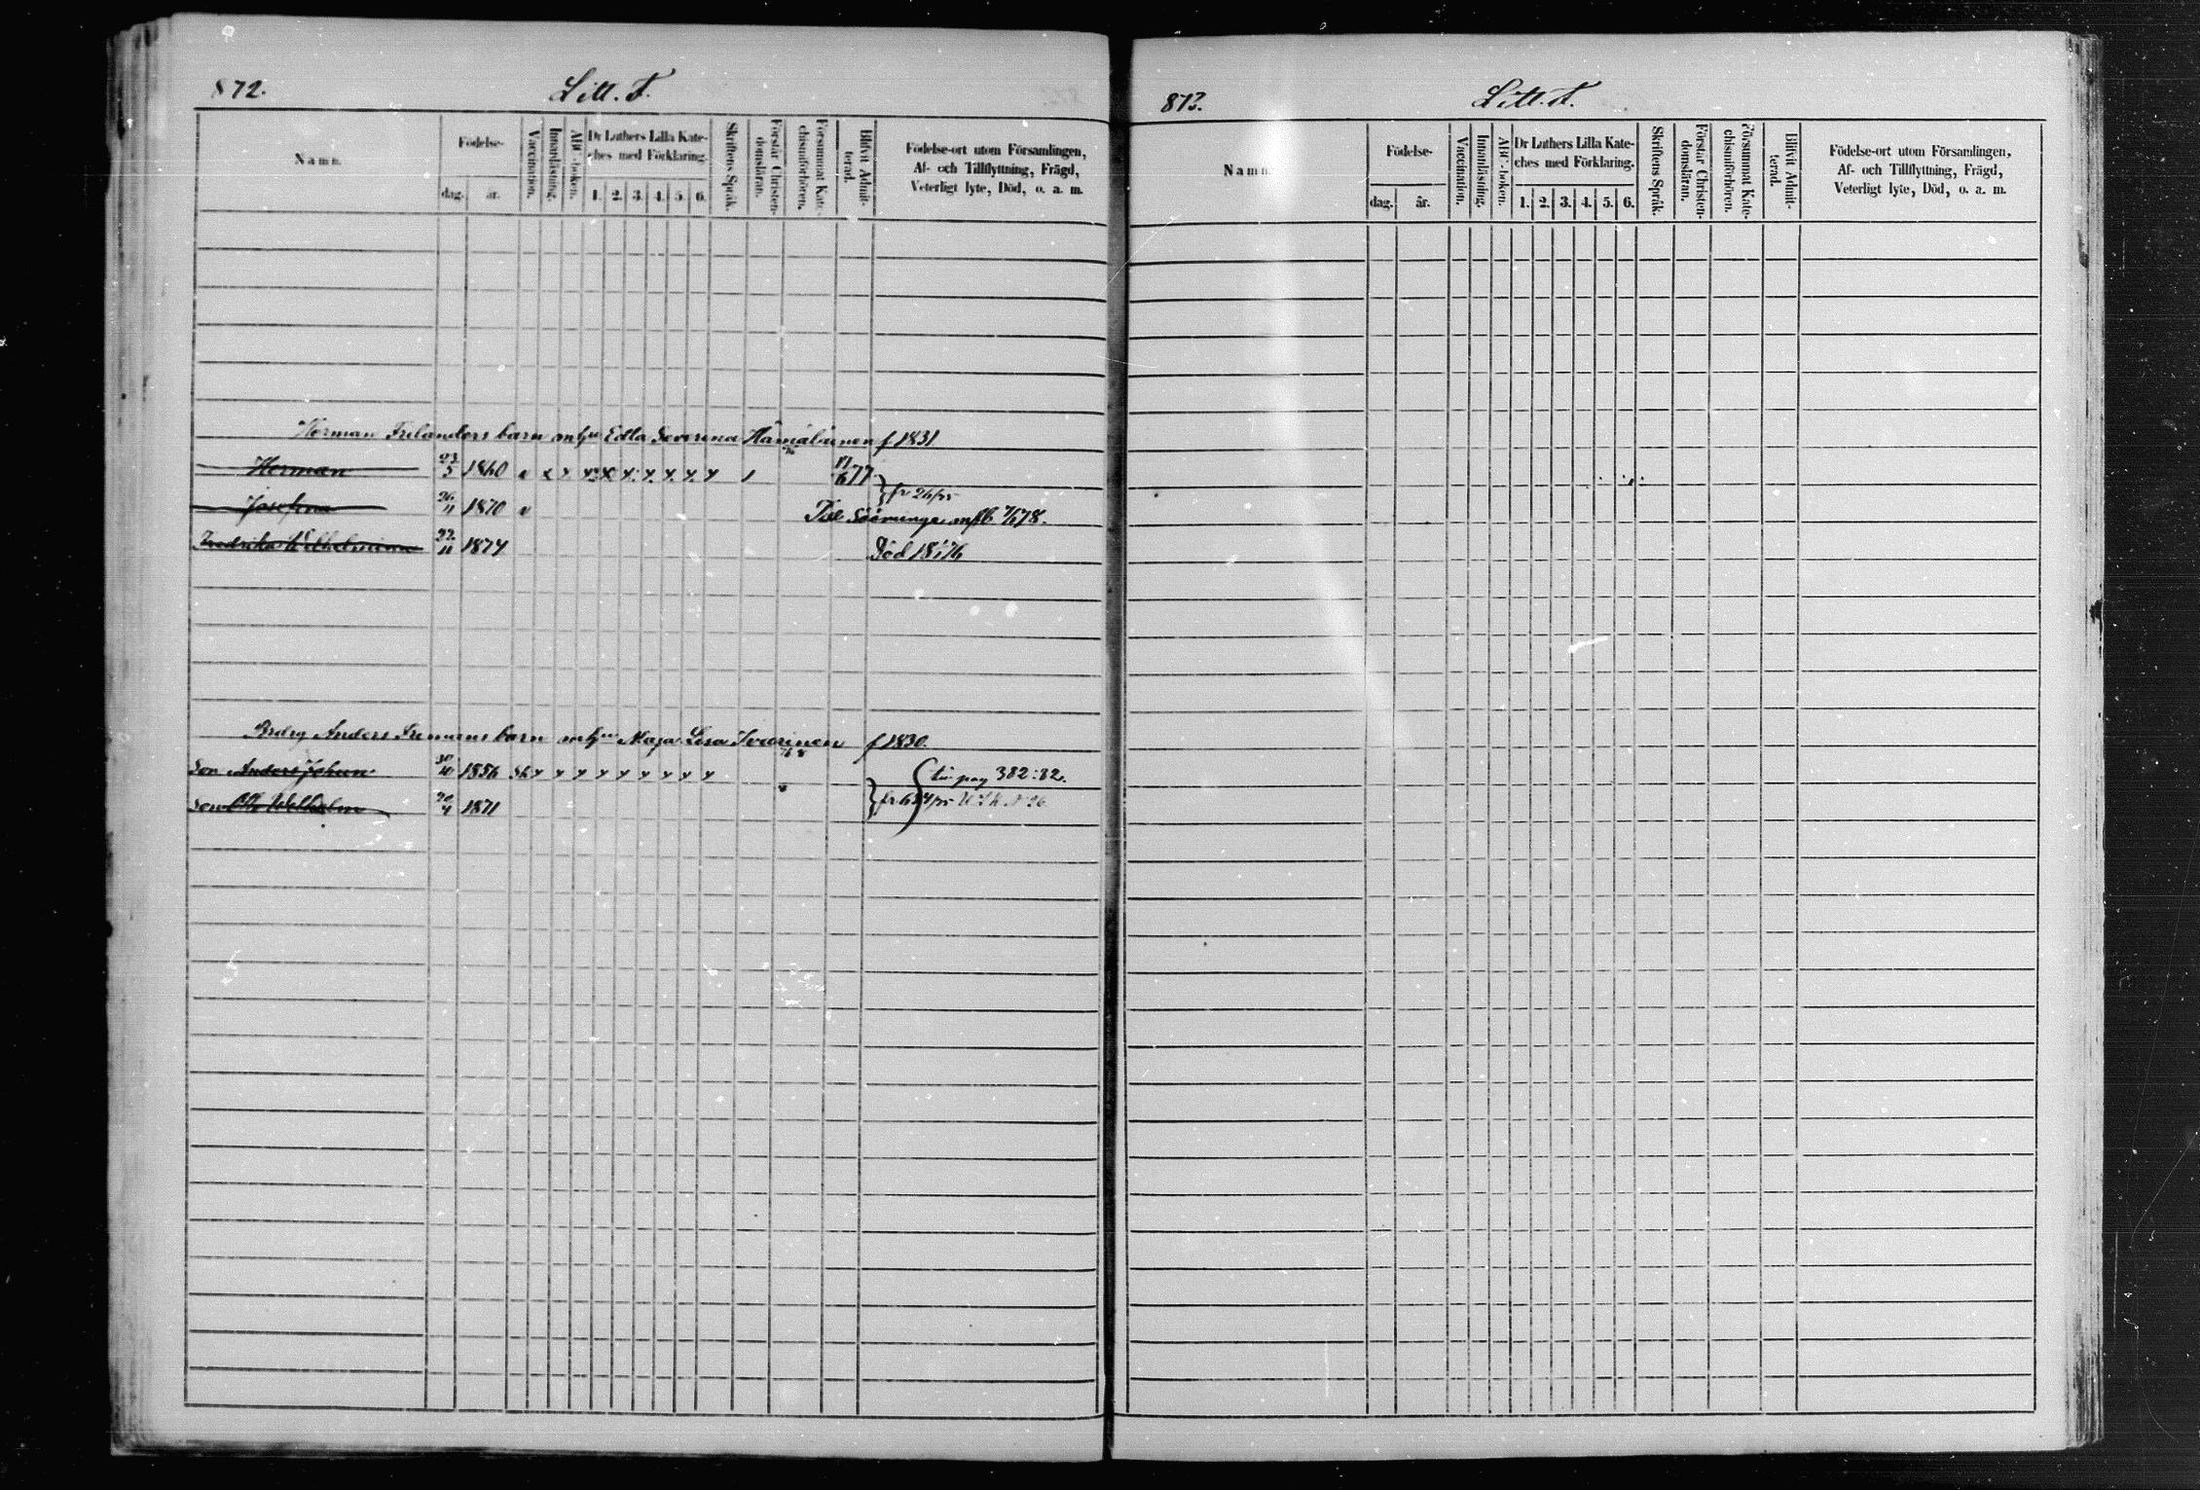 872.
Litt. F.
Namn.
Födelse-
dag.
år.
Vaccination.
Innanläsning.
ABC-boken.
Dr Luthers Lilla Kate-
ches med Förklaring.
1. 2. 3. 4. 5. 6.
Skriftens Språk.
Förstår Christen-
domsläran.
Försummat Kate-
chismiförhören.
Blifvit Admit-
terad.
Födelse-ort utom Församlingen,
Af- och Tillflyttning, Frägd,
Veterligt lyte, Död, o. a. m.
Herman Frilanders barn m hu Edla Severina Hämäläinen f 1831
Herman 23/5 1860 v x x x x x x x x x / 17/6 77
Josefina 26/11 1870 v fr 26/75
Till Säominge m fl 6 78.
Fredrika Wilhelmina 22/11 1874 Död 18 76
Anders barn m hu Maja Lisa f 1830.
Son Anders Johan 30/10 1856 Sk x x x x x x x x x pag 382:82.
Son Otto Wilhelm 4 1871
873.
Litt. F.
Namn
Födelse-
dag.
år.
Vaccination.
Innanläsning.
ABC-boken.
Dr Luthers Lilla Kate-
ches med Förklaring.
1. 2. 3. 4. 5. 6.
Skriftens Språk.
Förstår Christen-
domsläran.
Försummat Kate-
chismiförhören.
Blifvit Admit-
terad.
Födelse-ort utom Församlingen,
Af- och Tillflyttning, Frägd,
Veterligt lyte, Död, o. a. m.